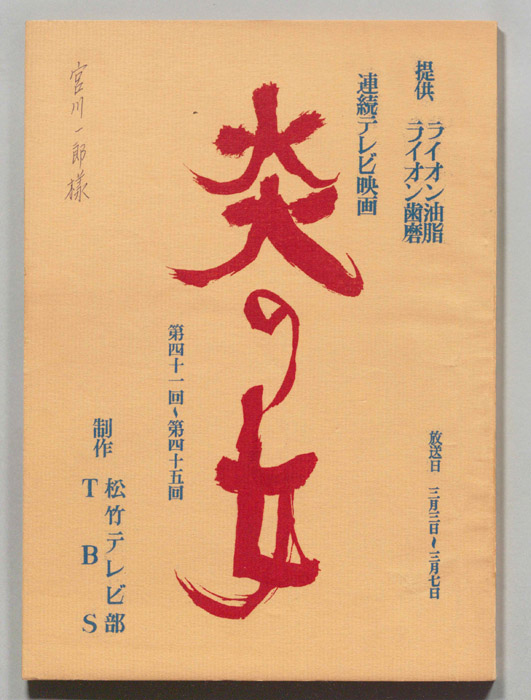 提供、ライオン油脂
ライオン歯磨
連続テレビ映画
炎の女
第四十一回～第四十五回
放送日 三月三日～三月七日
制作 松竹テレビ部
TBS
宮川一郎様